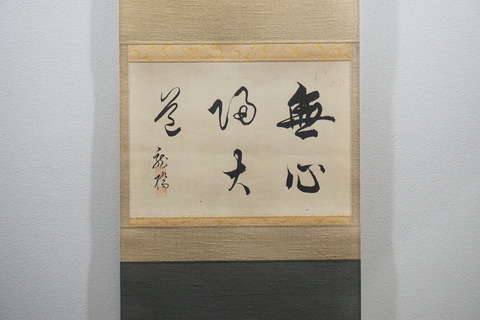 無心
歸大
道